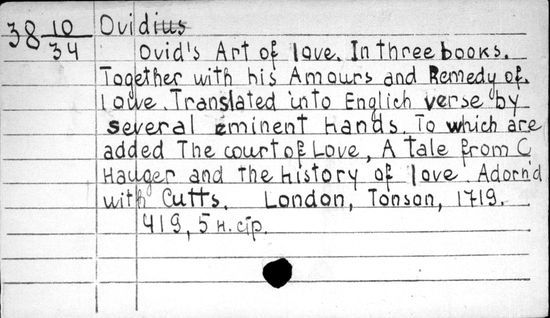 38 10/34 Ovidius
Ovid's Art of love. In three books.
Together with his Amours and Remedy of
love. Translated into Englich verse by
several eminent hands. To which are
added The court of Love, A tale from C
Hauger and the history of love. Adorn'd
with Cutts. London, Tonson, 1719.
419, 5 н. стр.